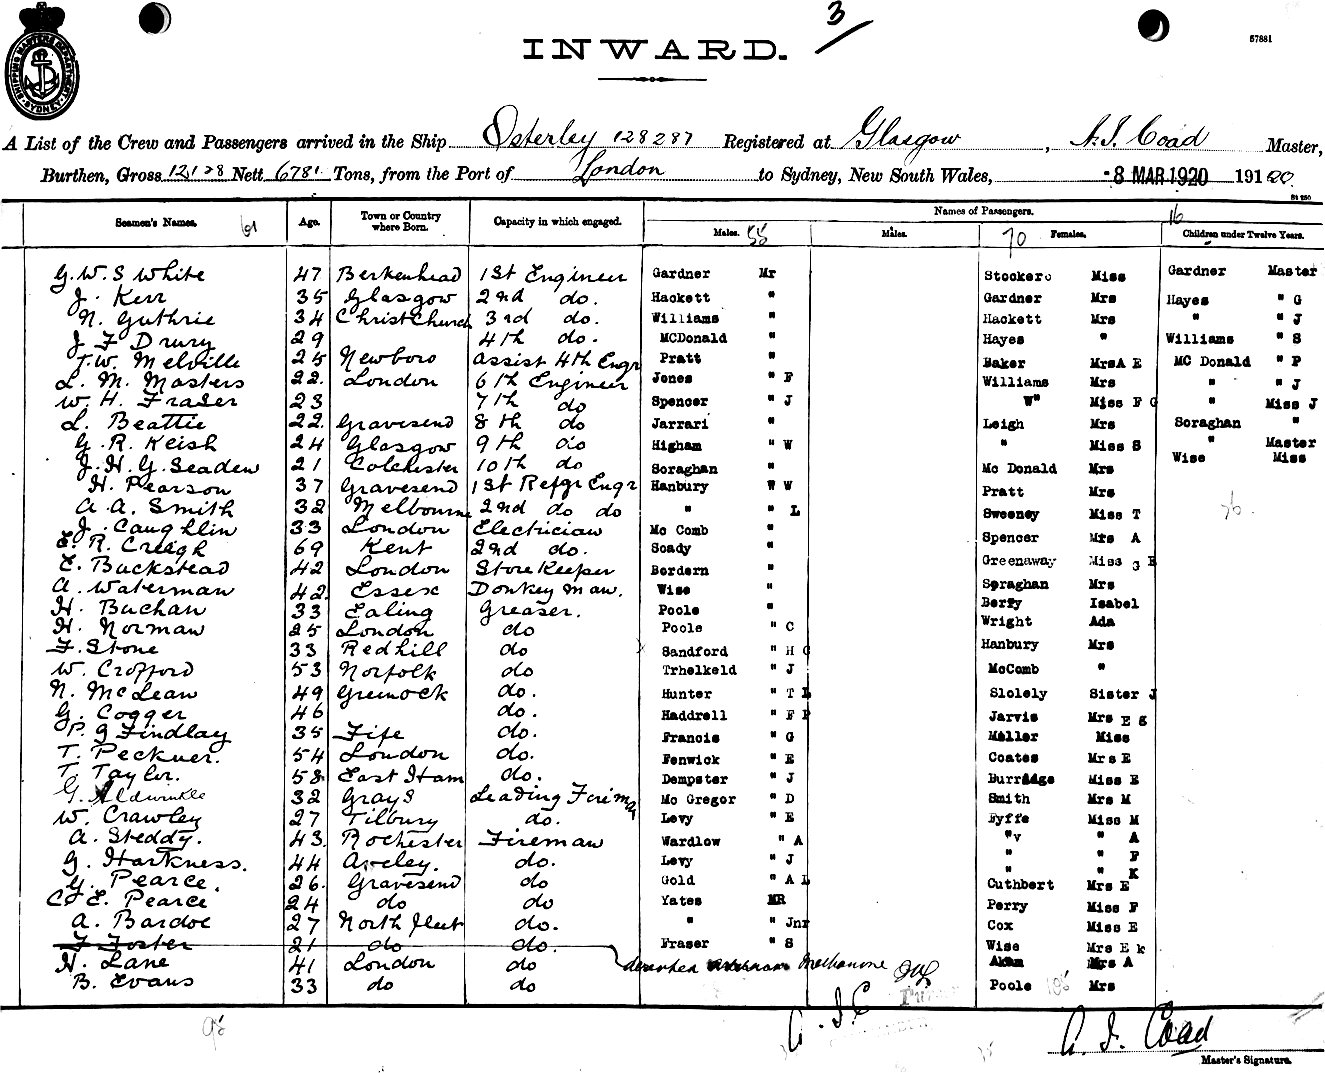 3
57881
INWARD.
SHIPPING MASTERS DEPARTMENT SYDNEY
A List of the Crew and Passengers arrived in the Ship Osterley 128287 Registered at Glasgow, A. J. Coad Master,
Burthen, Gross 12,128 Nett 6781 Tons, from the Port of London to Sydney, New South Wales, -8 MAR 1920 191920
Seamen's Names. Age. Town or Country where Born. Capacity in which engaged. Names of Passengers.
Males. 55 Males. 70 Females. 16 Children under Twelve Years.
G. W. S White 47 Berkenhead 1st Engineer Gardner Mr Stockero Miss Gardner Master
J. Kerr 35 Glasgow 2nd do. Hackett " Gardner Mrs Hayes " G
N. Guthrie 34 ChristChurch 3rd do. Williams " Hackett Mrs " " J
J F Drury 29 4th do. MCDonald " Hayes " Williams " S
T. W. Melville 25 Newboro assist 4th Engr Pratt " Baker MrsA E MC Donald " P
L. M. Masters 22. London 6th Engineer Jones " F Williams Mrs " " J
W. H. Fraser 23 7th do Spencer " J W" Miss F G " Miss J
L. Beattie 22. Gravesend 8th do Jarrari " Leigh Mrs Soraghan "
G. R. Keish 24 Glasgow 9th do Higham " W " Miss S " Master
J. H. G. Seaden 21 Colchester 10th do Soraghan " Mc Donald Mrs Wise Miss
H. Pearson 37 Gravesend 1st Refgr Engr Hanbury " W Pratt Mrs
A. A. Smith 32 Melbourne 2nd do do " " L Sweeney Miss T
J. Caughlin 33 London Electrician Mc Comb " Spencer Mrs A
E. R. Creigh 69 Kent 2nd do. Soady " Greenaway Miss G E
E. Buckstead 42 London Store Keeper Bordern " Soraghan Mrs
A. Waterman 42. Essex Donkey Man. Wise " Berry Isabel
H. Buchan 33 Ealing Greaser. Poole " Wright Ada
H. Norman 25 London do Poole " C Hanbury Mrs
F. Stone 33 Redhill do Sandford " H G McComb "
W. Crofford 53 Norfolk do Trhelkeld " J Slolely Sister J
N. McLean 49 Greenock do. Hunter " T L Jarvis Mrs E G
G. Cogger 46 do. Haddrell " F P Miller Miss
P. G Findlay 35 Fife do. Francis " G Coates Mrs E
T. Peckner. 54 London do. Fenwick " E Burridge Miss E
T. Taylor. 58 East Ham do. Dempster " J Smith Mrs M
G. Aldwinkle 32 Grays Leading Firema Mc Gregor " D Fyffe Miss M
W. Crawley 27 Tilbury do. Levy " E "v " A
A. Steddy. 43. Rochester Fireman Wardlow " A " " F
G. Harkness. 44 Aveley. do. Levy " J " " K
G. Pearce. 26. Gravesend do Gold " A L Cuthbert Mrs E
C. E. Pearce 24 do do Yates MR Perry Miss F
A. Bardoe 27 North fleet do. " " Jnr Cox Miss E
F Foster 21 do do. Fraser " S Wise Mrs E k
H. Lane 41 London do deserted Melbourne Akam Mrs A
B. Evans 33 do do Poole Mrs
A. J. C
A. J. Coad
Master's Signature.